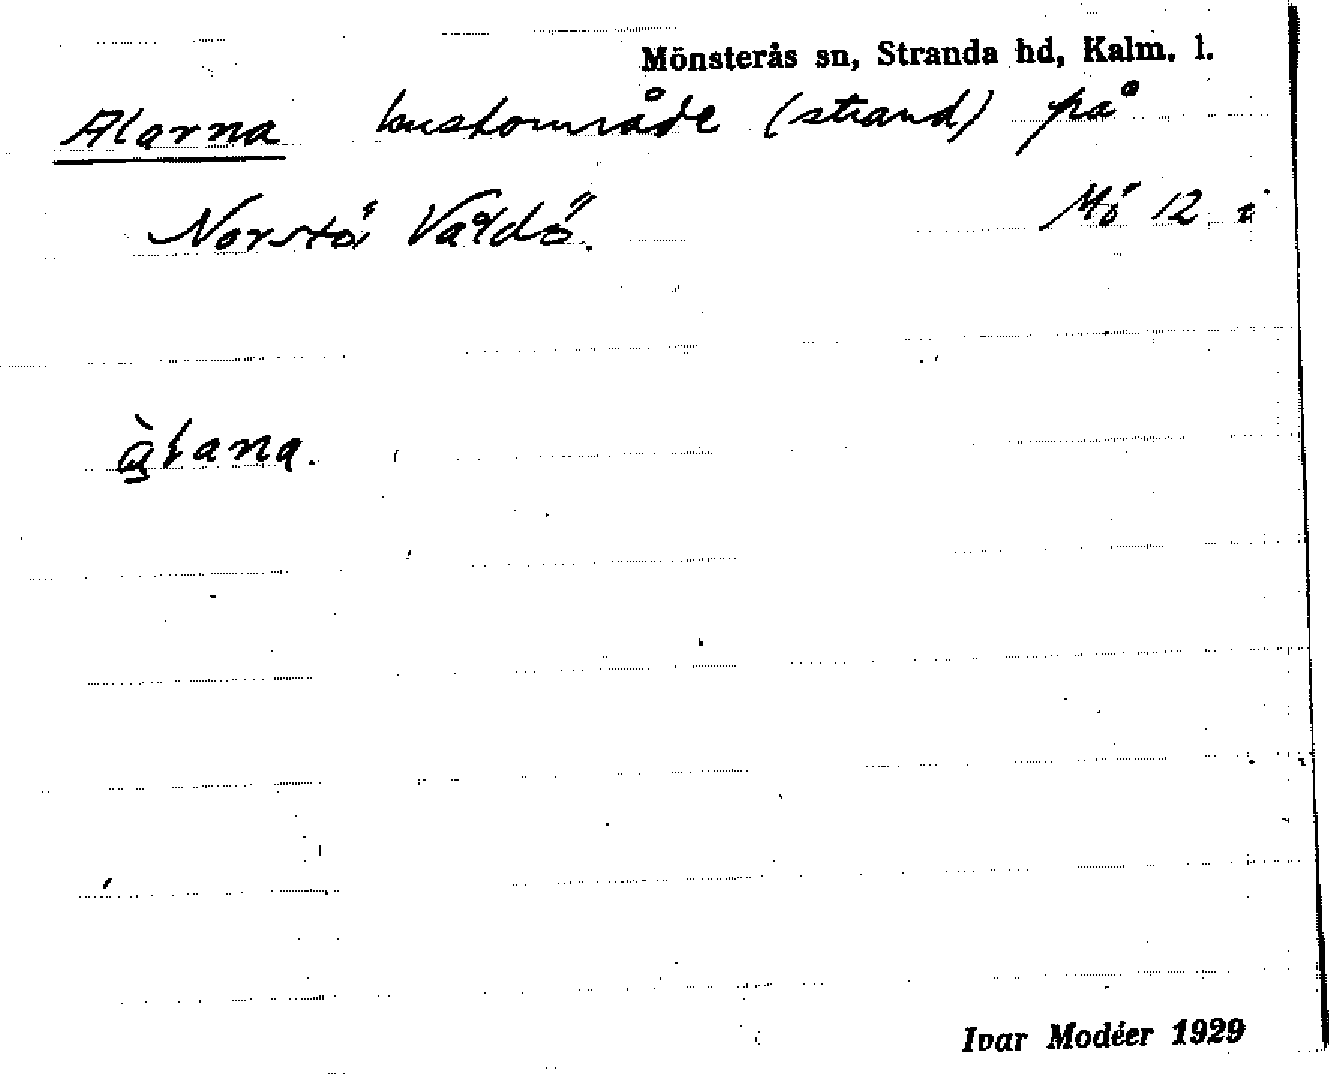 Mönsterås sn, Stranda hd, Kalm. l.
Alarna kustområde (strand) på
Norstö Vållö. Mö 12 i
àlana.
Ivar Modéer 1929